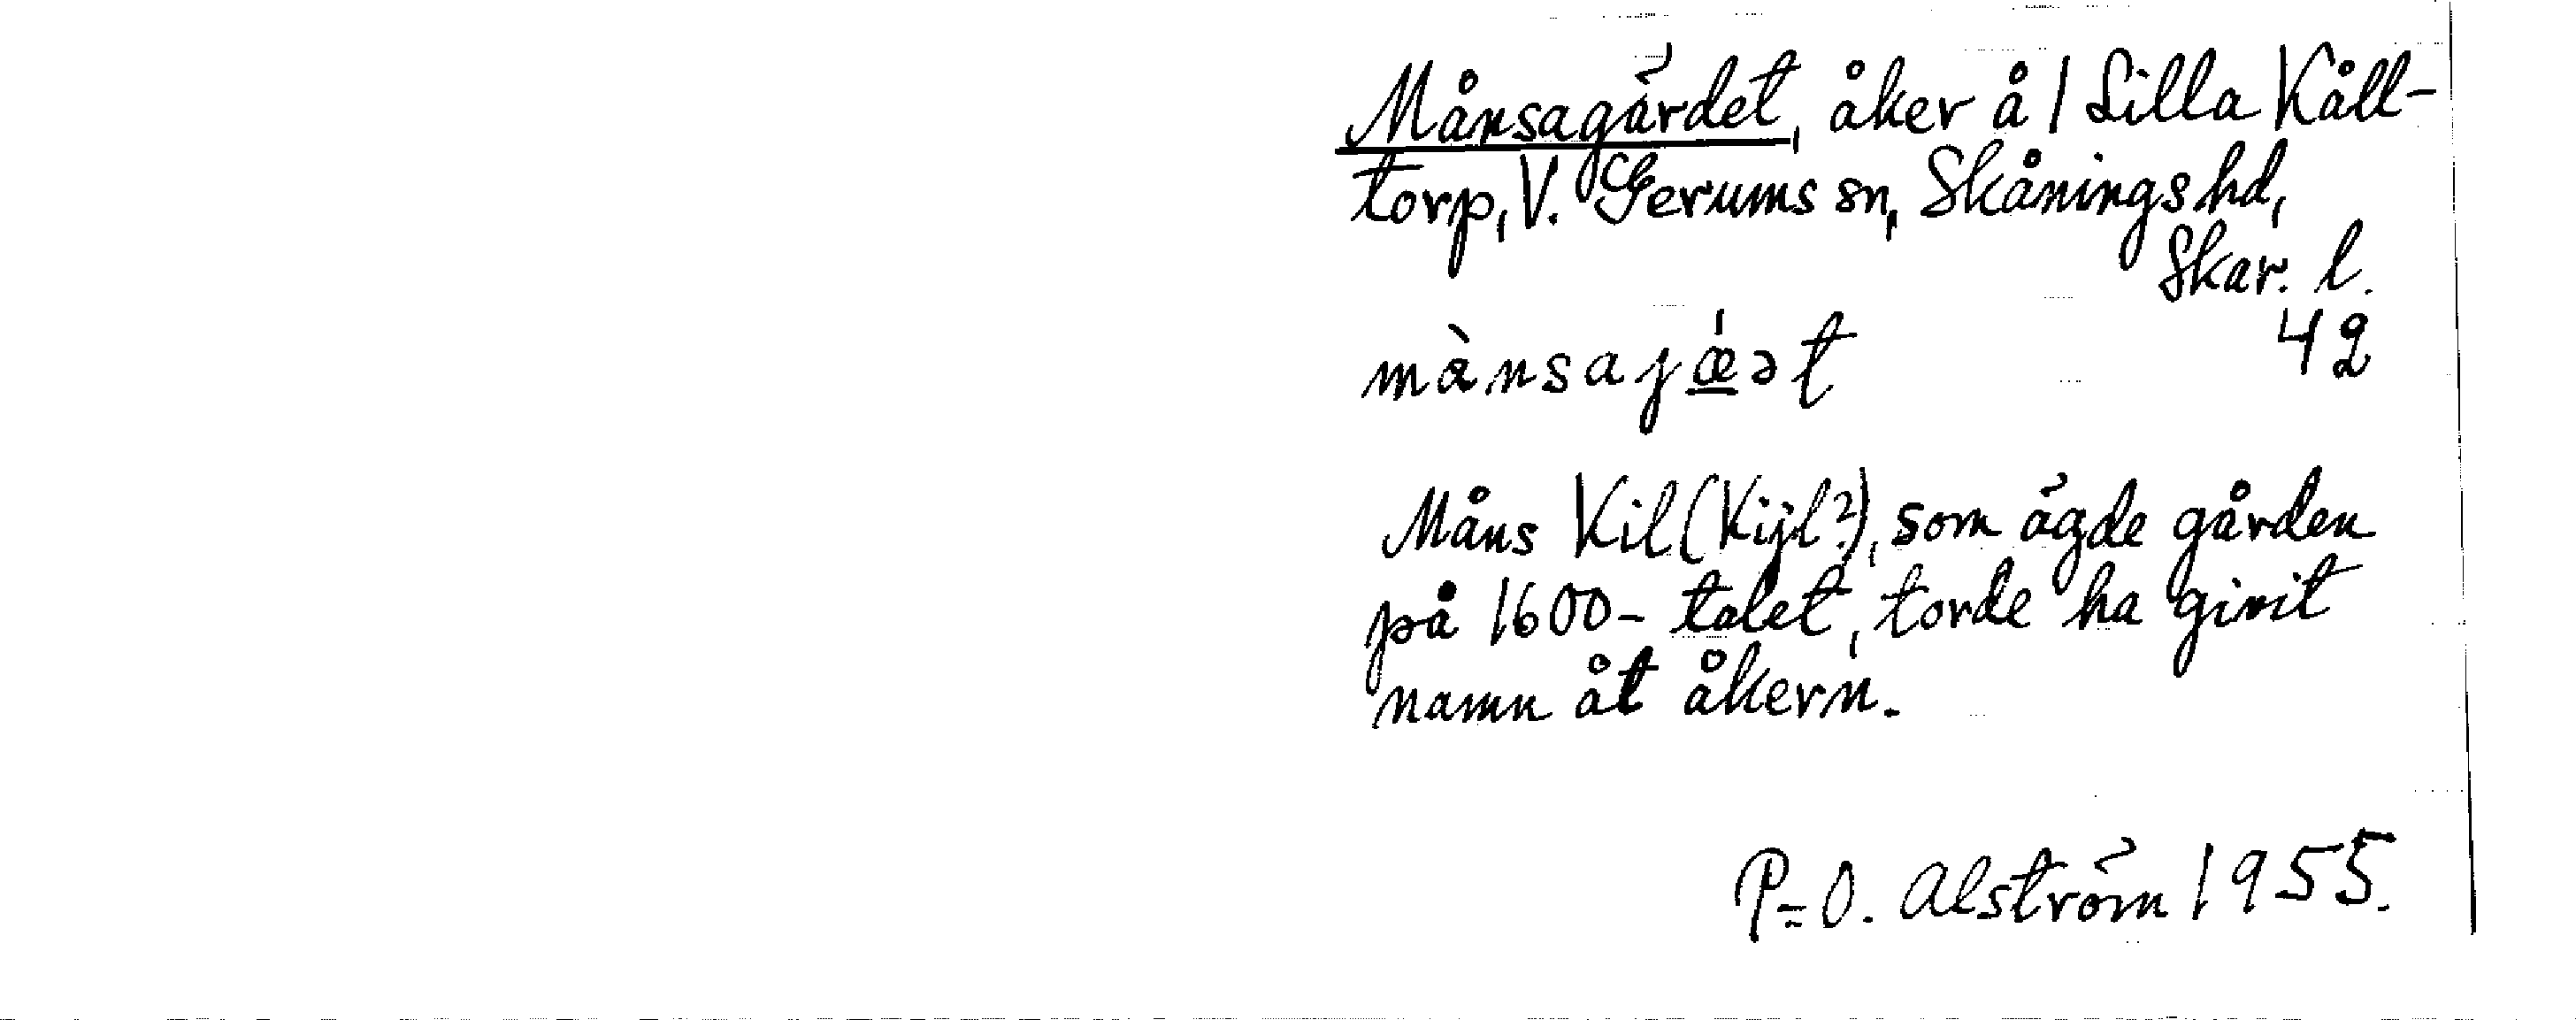 Månsagärdet, åker å 1 Lilla Kåll-
torp, V. Gerums sn, Skånings hd,
Skar. l.
42
mànsajǽət
Måns Kil (Kijl?), som ägde gården
på 1600-talet, torde ha givit
namn åt åkern.
P-O. Alström 1955.